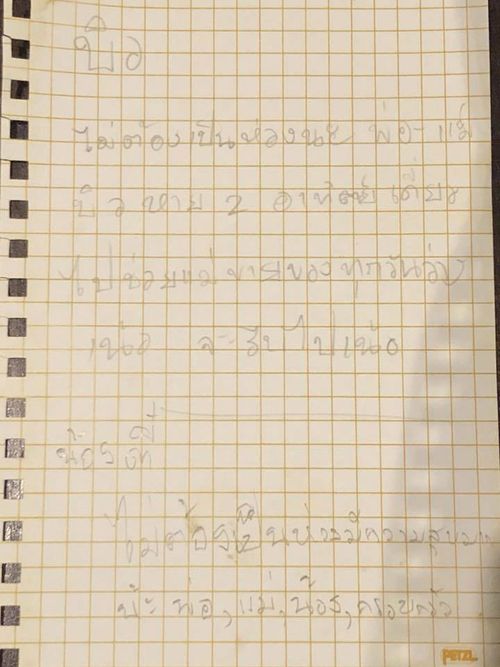 บิว
ไม่ต้องเป็นห่วงนะ พ่อ-แม่
บิวหาย 2 อาทิตย์เดี๋ยว
ไปช่วยแม่ขายของทุกวัน
จะรีบไปเน้อ
น้อง
ไม่ต้องเป็นห่วงมีความสุขมาก
พ่อ, แม่, น้อง, ครอบครัว
PETZL